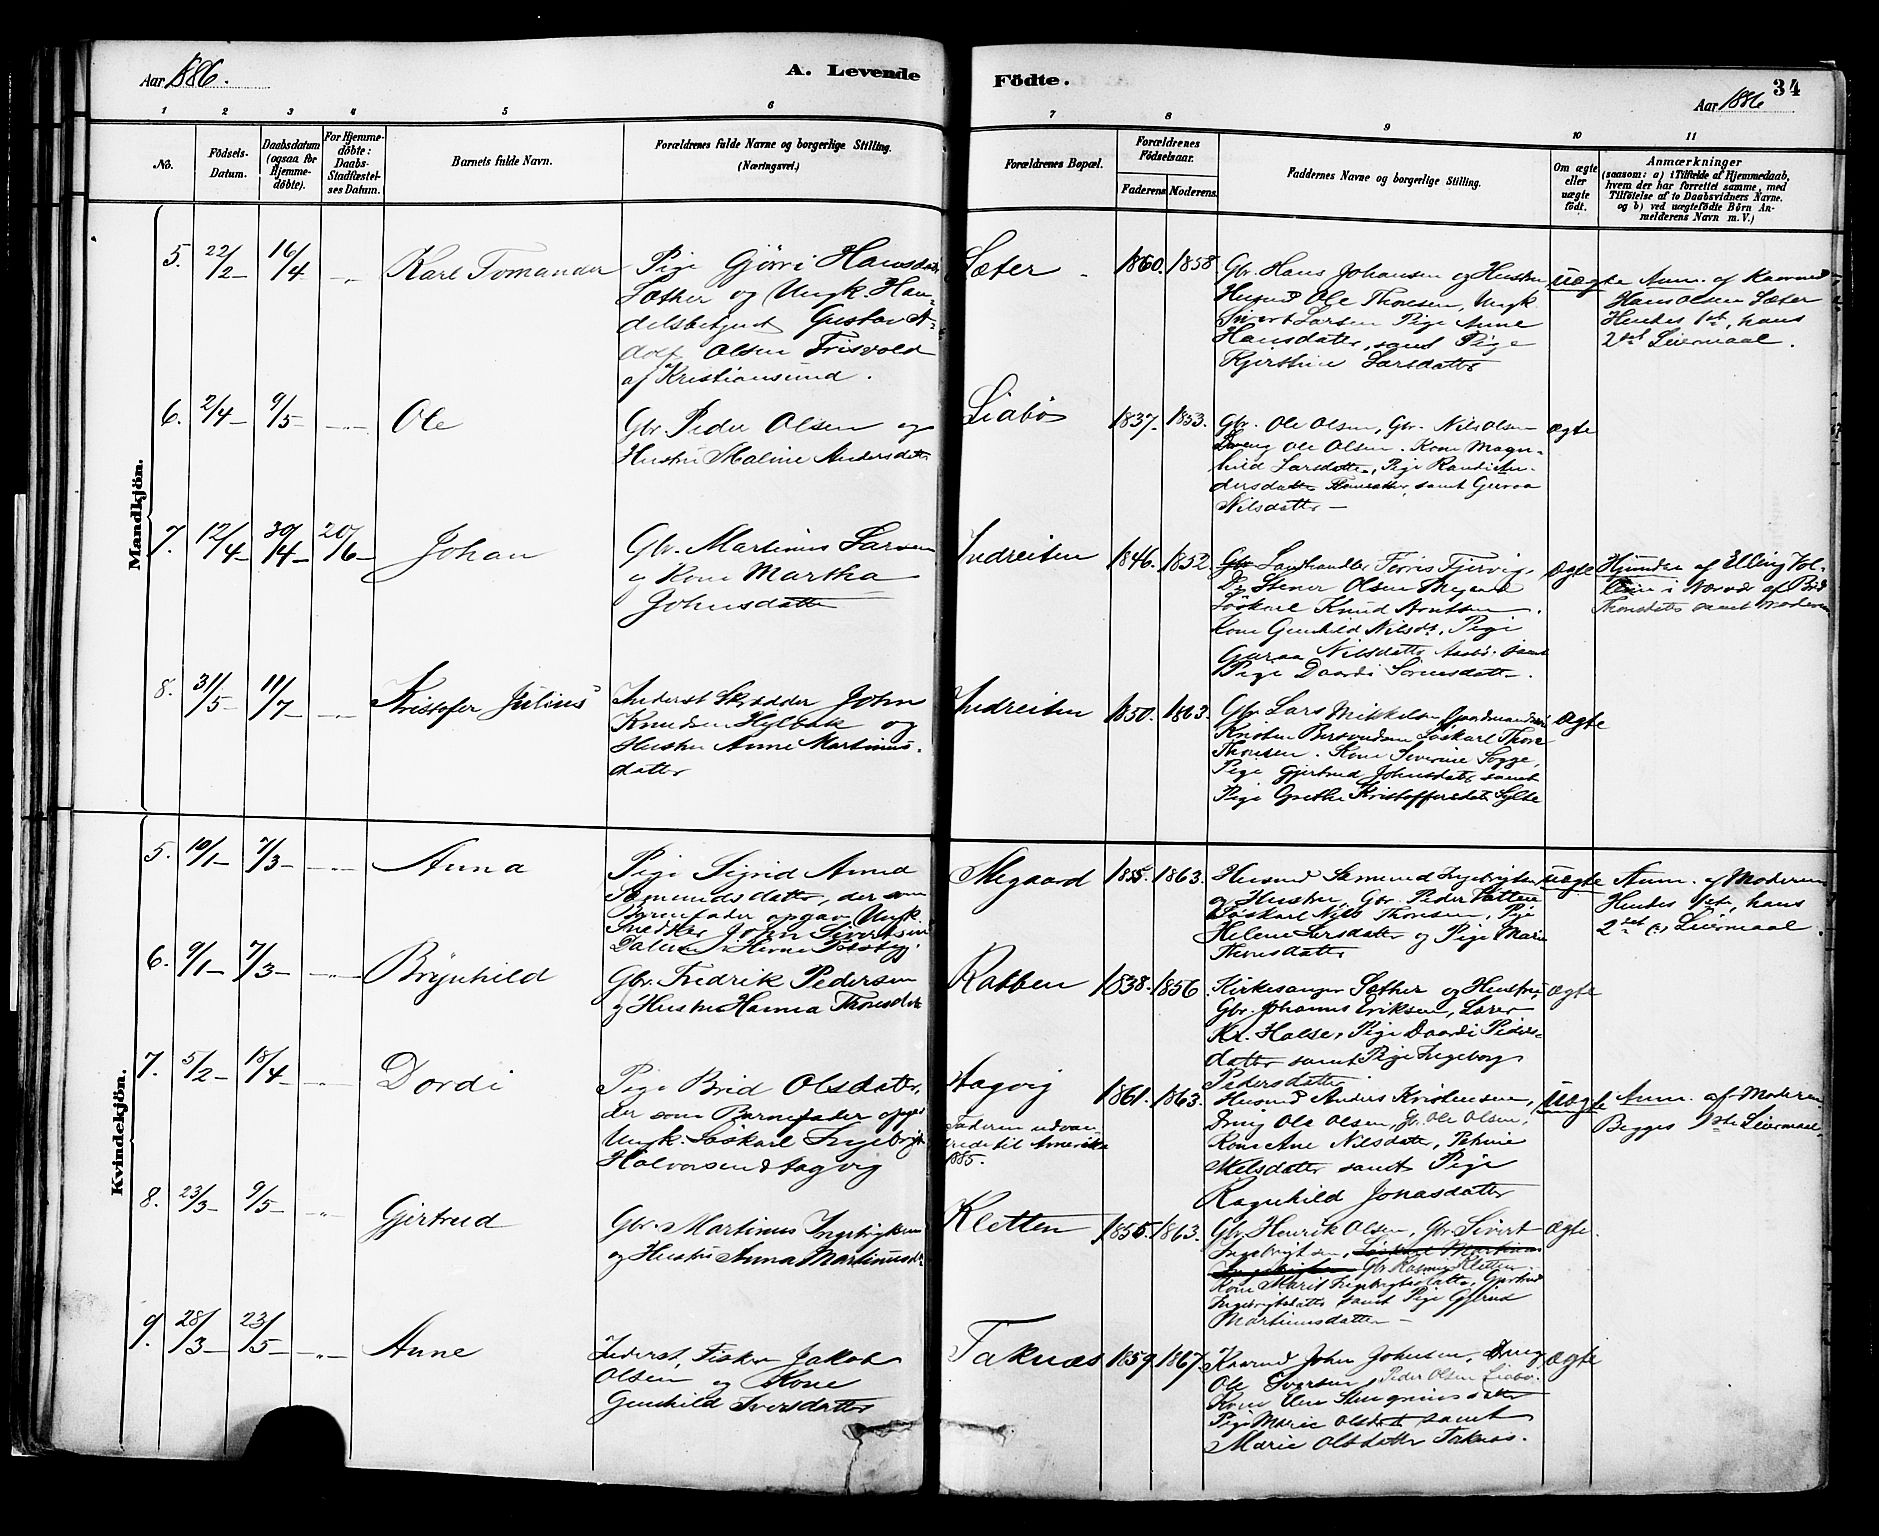 Aar 1886.
A. Levende
Födte.
34
Aar 1886
1 2 3 4 5 6 7 8 9 10 11
No.
Födsels-
Datum.
Daabsdatum
(ogsaa for
Hjemme-
döbte).
For Hjemme-
döbte:
Daabs-
Stadfæstel-
ses Datum.
Barnets fulde Navn.
Forældrenes fulde Navne og borgerlige Stilling.
(Næringsvei.)
Forældrenes Bopæl.
Forældrenes
Födselsaar.
Faderens Moderens.
Faddernes Navne og borgerlige Stilling.
Om ægte
eller
uægte
födt.
Anmærkninger
(saasom: a) i Tilfælde af Hjemmedaab,
hvem der har forrettet samme, med
Tilföielse af to Daabsvidners Navne.
og b) ved uægtefödte Börn An-
melderens Navn m. V.)
Mandkjön.
5. 22/2 16/4 -"- Karl Tomander
Pige Gjørri Hansdatter
Sæther og Ungk. Han-
delsbetjent Gustav A-
dolf Olsen Frisvold
af Kristiansund.
Sæter - 1860. 1858
Gbr. Hans Johansen og Hustru
Husmd Ole Thoresen, Ungk
Sivert Larsen Pige Anne
Hansdatter, samt Pige
Kjerstine Larsdatter
uægte
Anm. af
Hans Olsen Sæter
Hendes 1ste, hans
2det Leiermaal.
6. 2/4 9/5 -"- Ole
Gbr. Peder Olsen og
Hustru Maline Andersdatter
Liabö 1837. 1853.
Gbr. Ole Olsen, Gbr. Nils Olsen
Dreng Ole Olsen. Kone Magn-
hild Larsdatter, Pige Randi An-
dersdatter samt Guroa
Nilsdatter —
ægte
7. 12/4 30/4 20/6 Johan
Gbr. Martinus Larsen
og Kone Martha
Johnsdatter
Indreiten 1846. 1852.
Landhandler
Olsen
Löskarl Knud
Kone Gunhild Nilsdt. Pige
Guroa Nilsdatter samt
Pige Daardi
ægte
Hjemdbt af Elling
i Nærvær af
Thoresdatter samt Moderen
8. 31/5 11/7 -"- Kristofer Julius
Inderst Skrædder John
Knudsen Hylbak og
Hustru Anne Martinus-
datter
Indreiten 1850. 1863.
Gbr. Lars Mikkelsen
Löskarl Thore
Thoresen. Kone Severine Sogge,
Pige Gjertrud Johnsdatter samt
Pige Grethe Kristoffersdatter Sylte
ægte
Kvindekjön.
5. 10/1 7/3 -"- Anna
Pige Sigrid Anna
Sæmundsdatter, der som
Barnefader opgav Ungk.
Snedker John Sivertsen
Skegaard 1855. 1863.
Husmd Sæmund Ingebrigtsen
og Hustru, Gbr. Peder Vatten
Löskarl Nils Thoresen, Pige
Helene Larsdatter og Pige Marie
Thoresdatter
uægte
Anm. af Moderen
Hendes 1ste, hans
2det Leiermaal.
6. 9/1 7/3 -"- Brynhild
Gbr. Fredrik Pedersen
og Hustru Hanna Thoresdtr
Kabben 1838. 1856
Kirkesanger Sæther og Hustru,
Gbr. Johannes Eriksen, Lærer
Kr. Halse, Pige Daardi Peders-
datter samt Pige Ingeborg
Pedersdatter
ægte
7. 5/2 18/4 -"- Dordi
Pige Brid Olsdatter,
der som Barnefader opgav
Ungk. Löskarl Ingebrigt
Halvorsen Aagvig
Aagvig 1861. 1863.
Faderen udvan-
dret til Amerika
1885.
Husmd Anders Kristensen,
Dreng Ole Olsen, Gbr. Ole Olsen,
Kone Ane Nilsdatter,
Nelsdatter samt Pige
Ragnhild Jonasdatter
uægte
Anm. af Moderen
Begges 1ste Leiermaal
8. 23/3 9/5 -"- Gjertrud
Gbr. Martinus Ingebrigtsen
og Hustru Anna Martinusdtr
Kletten 1855. 1863.
Gbr. Henrik Olsen, Gbr. Sivert
Ingebrigtsen, Löskarl Martinus
Ingebrigtsen Gbr Rasmus Kletten
Kone Marit Ingebrigtsdatter, Gjertrud
Ingebrigtsdatter samt Pige Gjertrud
Martinusdatter —
ægte.
9. 28/3 23/5 -"- Anne
Inderst, Fisker Jakob
Olsen og Kone
Gunhild Iversdatter
Taknæs 1859. 1867.
John Johnsen, Dreng
Ole Iversen, Peder Olsen Liabø.
Kone
Pige Marie Olsdatter samt
Marie Olsdatter Taknæs.
ægte